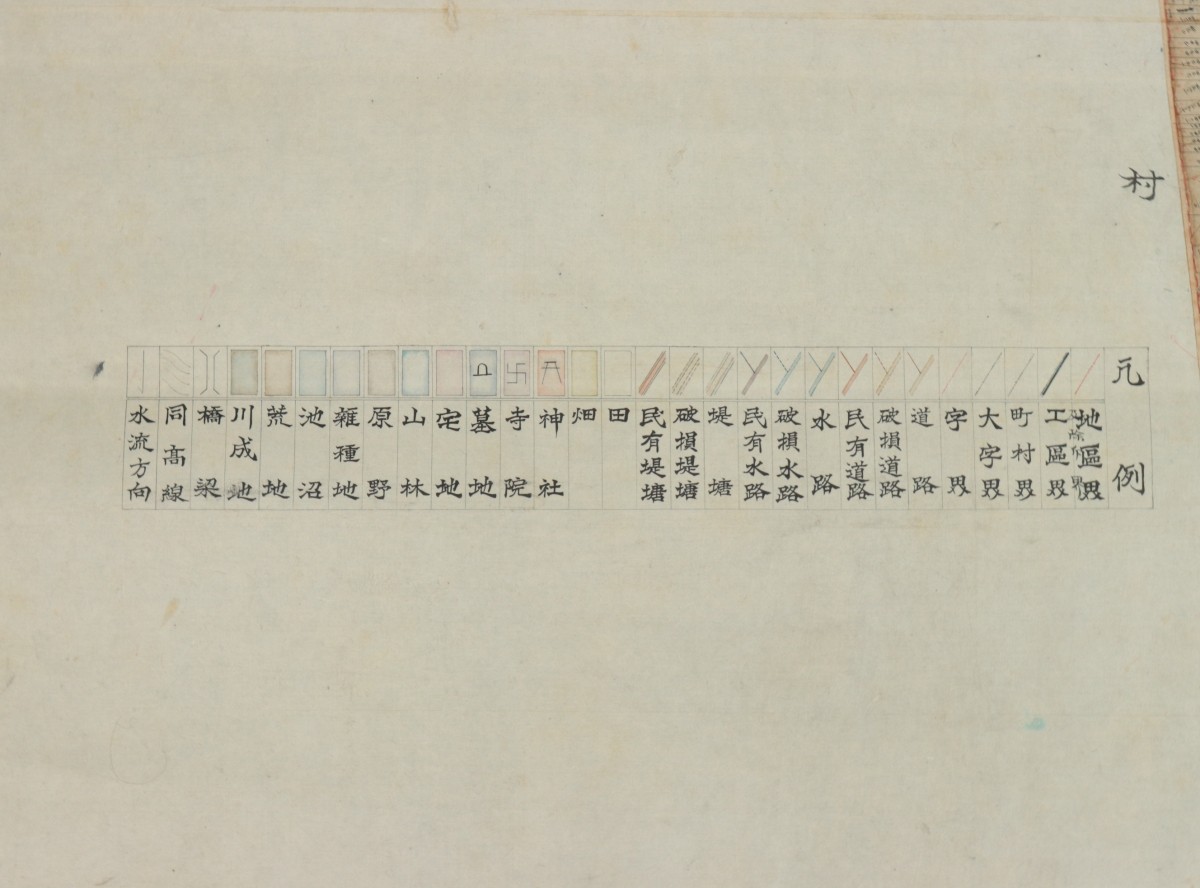 村
凡例
地區界
工區界
町村界
大字界
字界
道路
破損道路
民有道路
水路
破損水路
民有水路
堤塘
破損堤塘
民有堤塘
田
畑
神社
寺院
墓地
宅地
山林
原野
雑種地
池沼
荒地
川成地
橋梁
同高線
水流方向